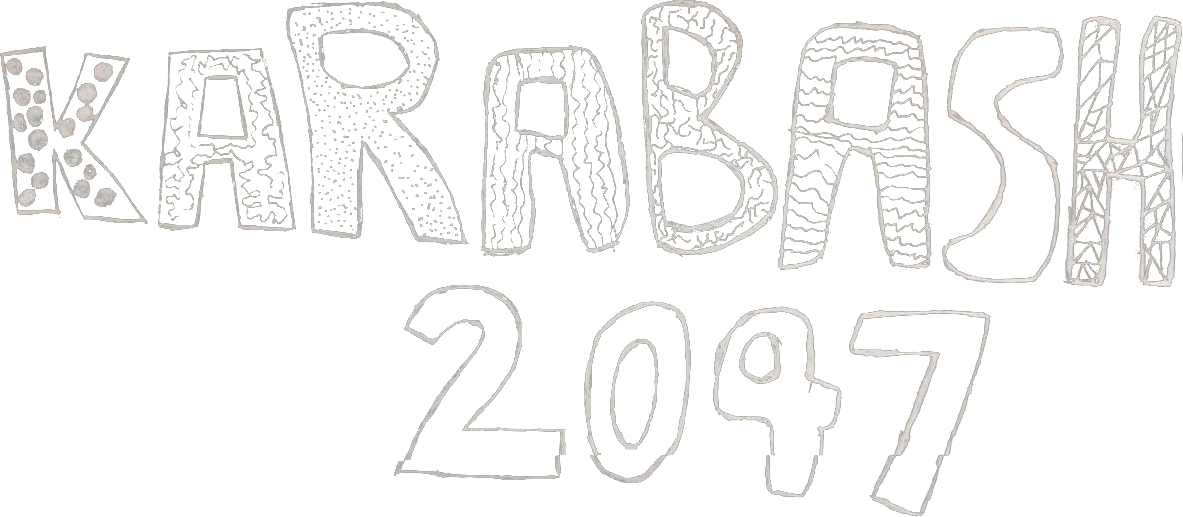 KARABASH
2097